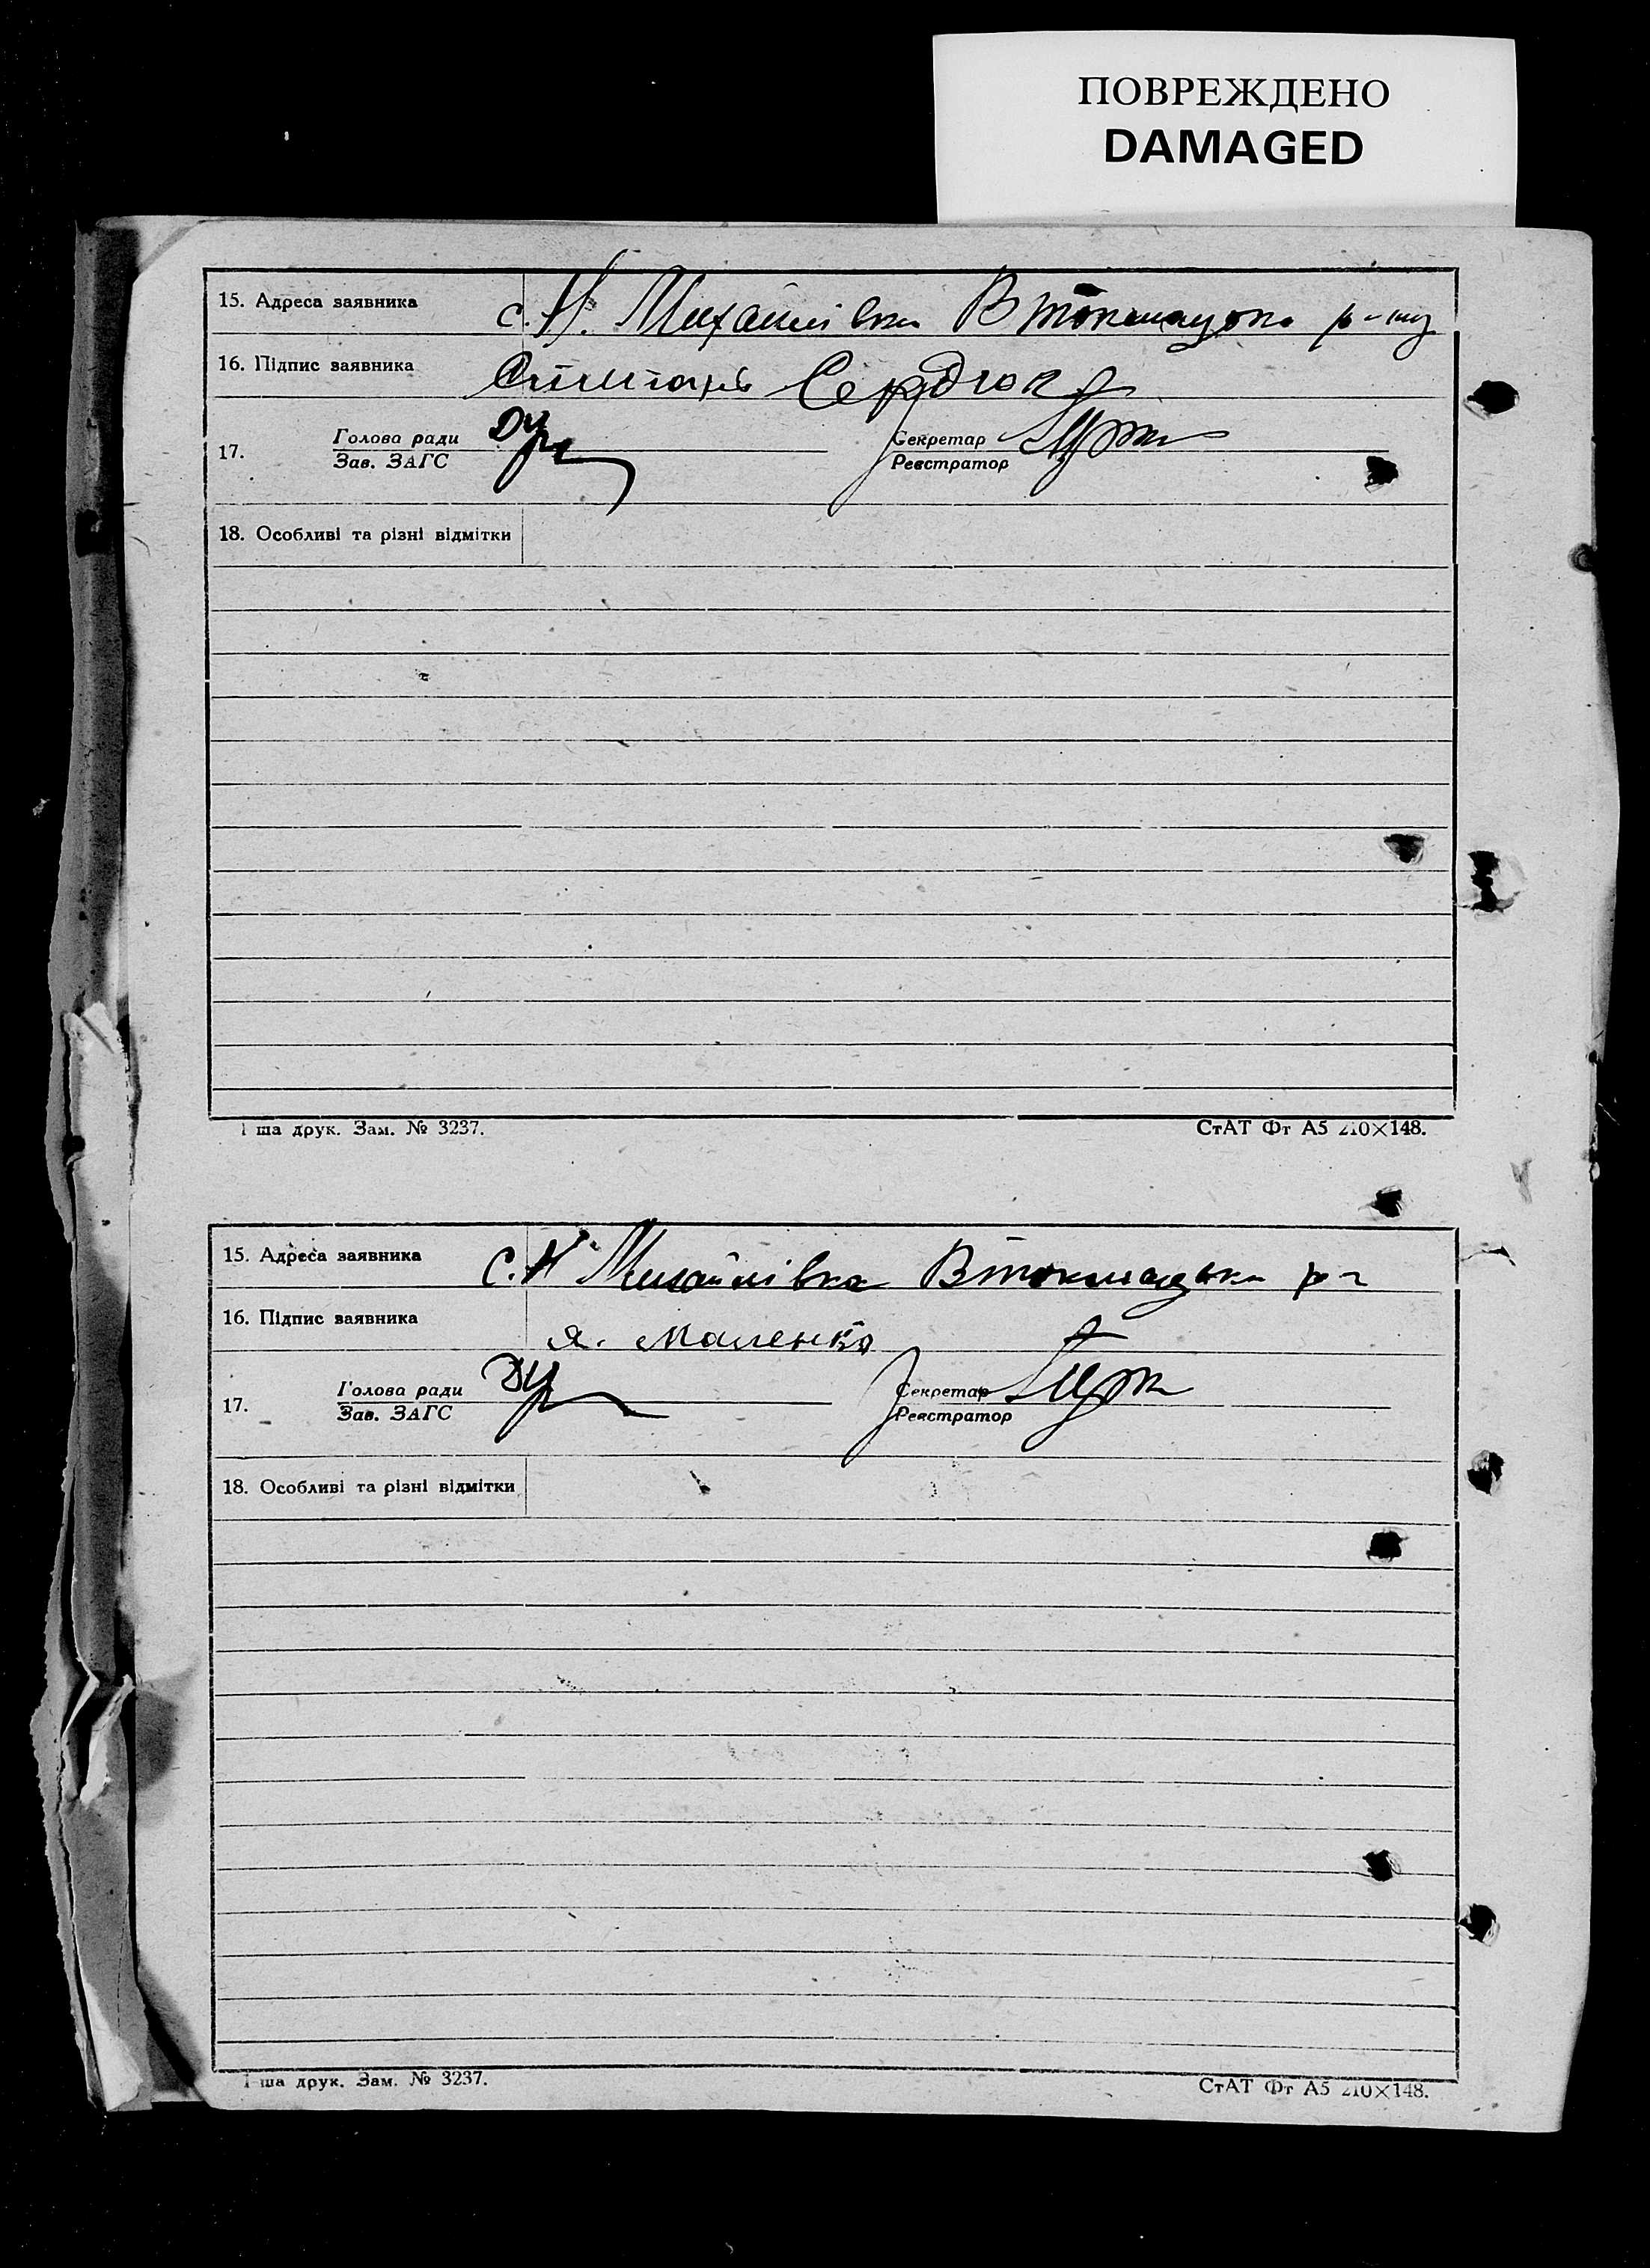 ПОВРЕЖДЕНО
DAMAGED
15. Адреса заявника с. Н. Михайлівка В токмацька р-ну
16. Підпис заявника Сердюк
17. Голова ради Секретар
Зав. ЗАГС Реєстратор
18. Особливі та різні відмітки
ша друк. Зам. № 3237. СтАТ Фт А5 210×148.
15. Адреса заявника с. Н Михайлівка Втокмацька р-
16. Підпис заявника я. Маленко
17. Голова ради Секретар
Зав. ЗАГС Реєстратор
18. Особливі та різні відмітки
ша друк. Зам. № 3237. СтАТ Фт А5 210×148.